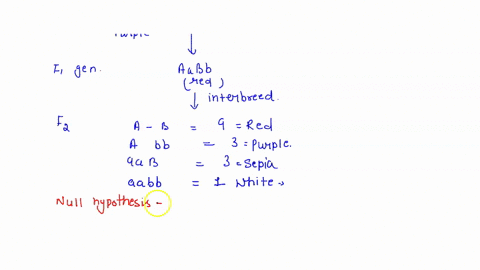 purple
F1 gen. AaBb
(red)
interbreed.
F2 A - B = 9 = Red
A bb = 3 = purple.
aaB = 3 = Sepia
aabb = 1 White
Null hypothesis -